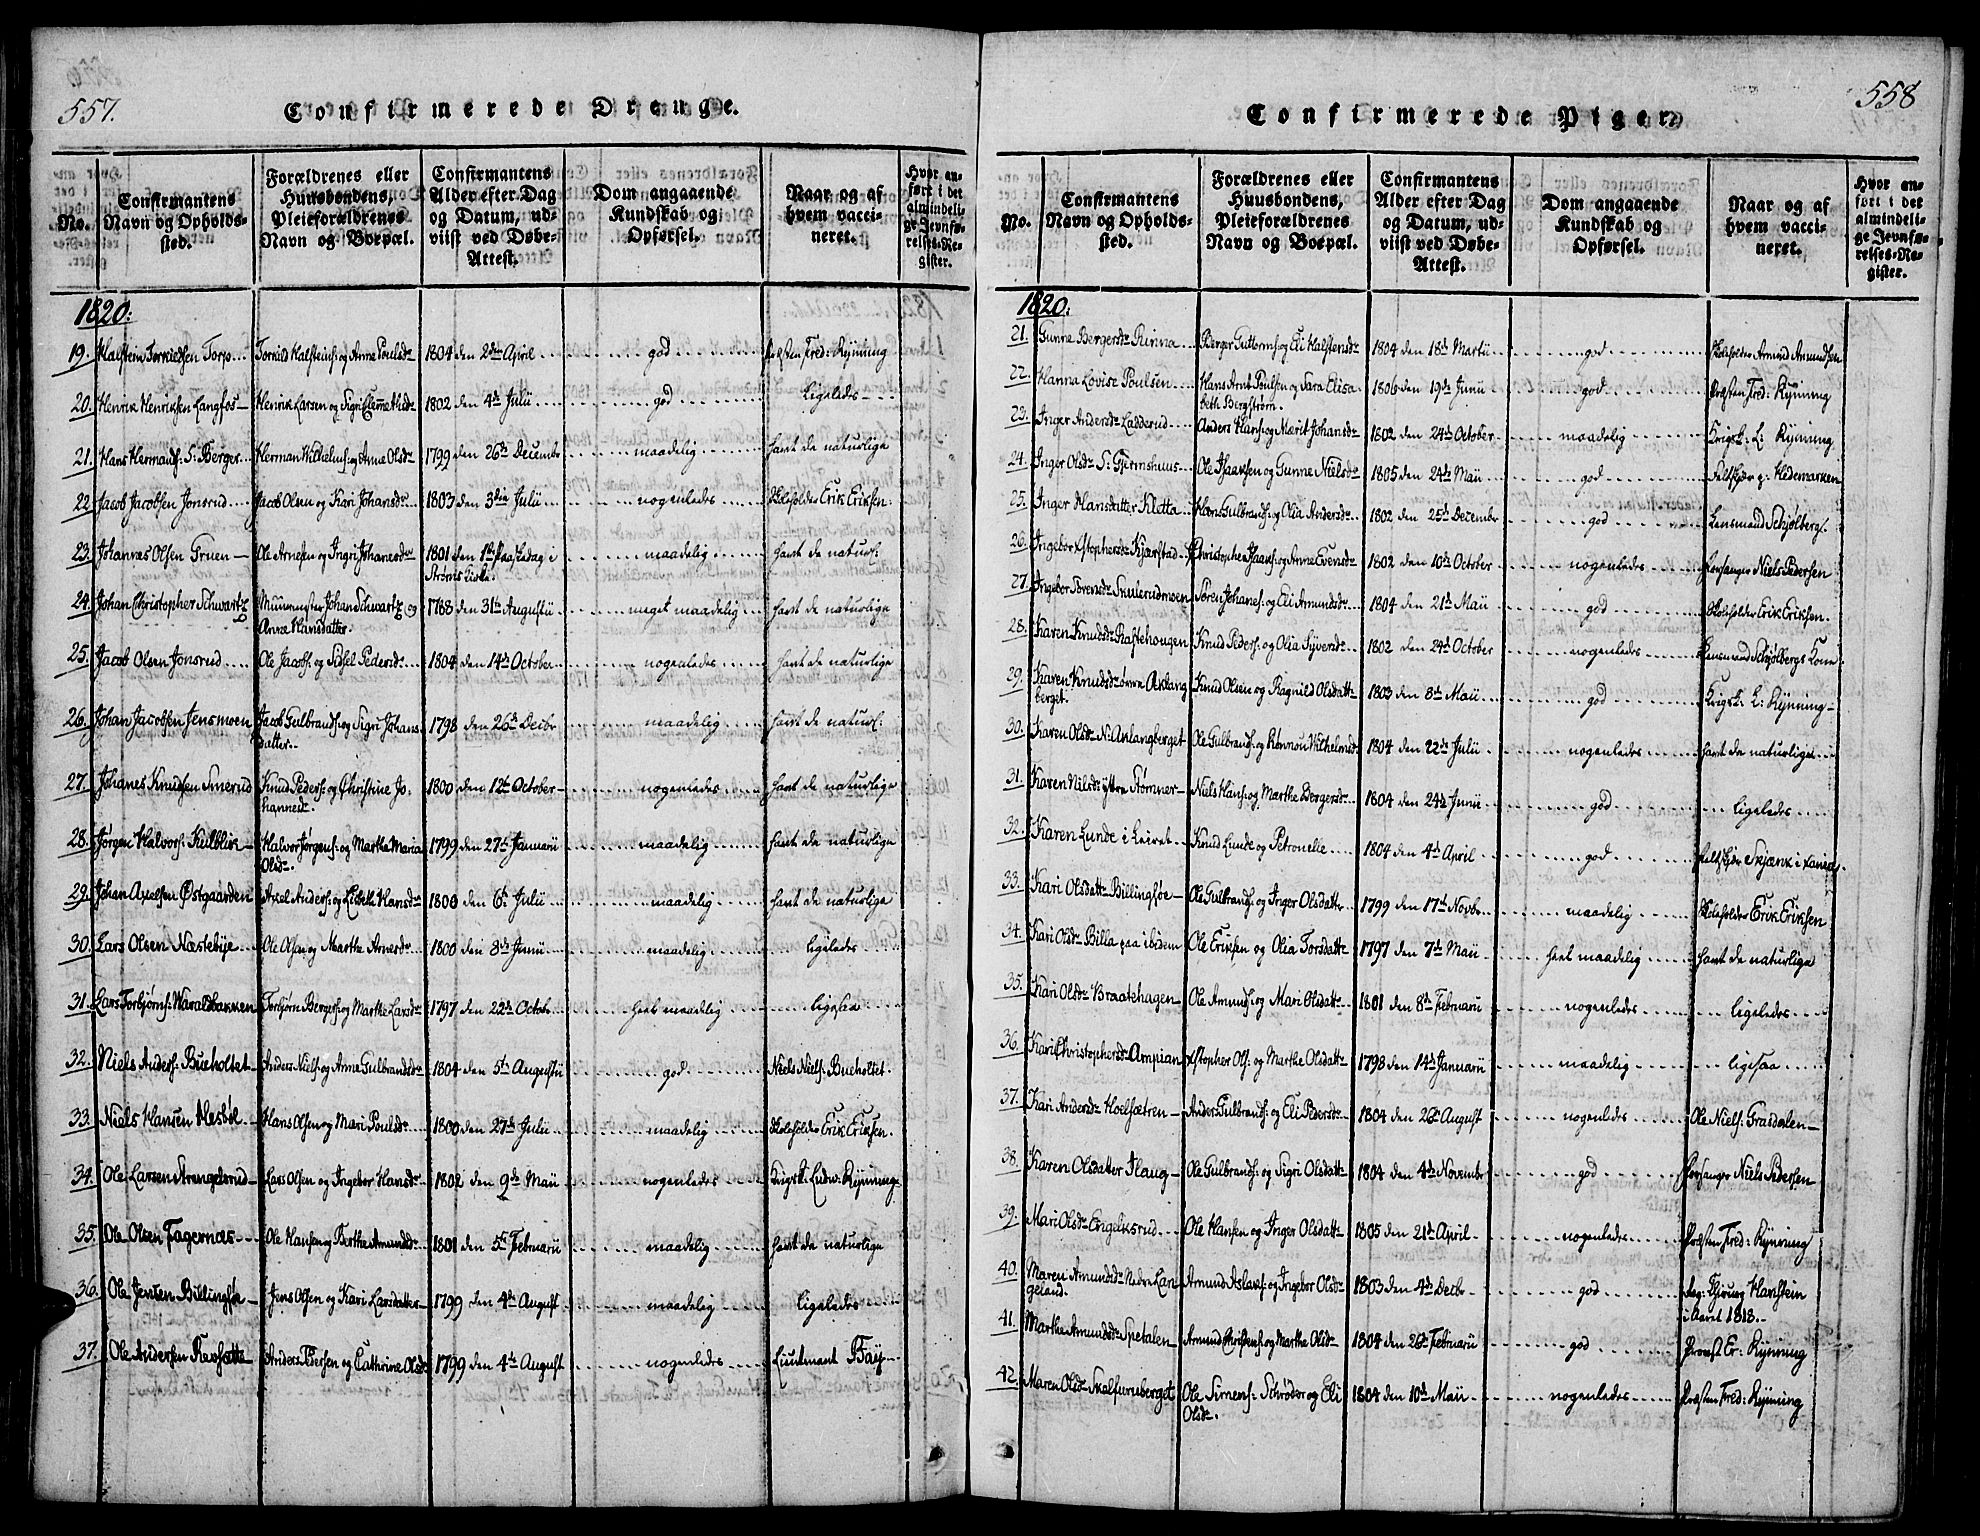 557.
Confirmerede Drenge.
No.
Confirmantens Navn og Opholds-sted.
Forældrenes eller Huusbondens, Pleieforældrenes Navn og Boepæl.
Confirmantens Alder efter Dag og Datum, ud-viist ved Døbe-Attest.
Dom angaaende Kundskab og Opførsel.
Naar og af hvem vacci-neret.
Hvor an-ført i det almindeli-ge Jevnfø-relses-Re-gister.
1820:
19. Halstein Torkildsen Torp Torkild Halsteins: og Anne Poulsdr 1804 den 2den April god Præsten Fred: Rynning
20. Henrik Henriksen Langfos Henrik Larsen og Sigri 1802 den 4de Julii god ligeledes
21. Hans Hermands: S: Berger Herman Wilhelms: og Anne Olsdr 1799 den 26de Decembr maadelig havt de naturlige
22 Jacob Jacobsen Jonsrud Jacob Olsen og Kari Johansdr 1803 den 3die Julii nogenledes Skoleholder Erik Eriksen
23. Johannes Olsen Gruen Ole Arnesen og Ingri Johanesdr 1801 den 1ste Paaskedag i Strøms Kirke. maadelig havt de naturl:
24. Johan Christopher Schwartz Muurmester Johan Schwartz og Anne Hansdatter. 1788 den 31te Augustii meget maadelig havt de naturlige
25. Jacob Olsen Jonsrud Ole Jacobs: og Sidsel Pedersdr 1804 den 14de October nogenledes havt de naturlige
26. Johan Jacobsen Jensmoen Jacob Gulbrands: og Sigri Johansdatter. 1798 den 26de Decbr maadelig havt de naturl:
27. Johanes Knudsen Smerud Knud Peders: og Christine Johannesd. 1800 den 12te October nogenledes havt de naturlige
28. Jørgen Halvors: Kulblik Halvor Jørgens: og Marthe Maria Olsdr. 1799 den 27de Januarii maadelig havt de naturlige
29. Johan Axelsen Østgaarden Axel Anders: og Lisbeth Hansdr 1800 den 6te Julii maadelig havt de naturlige
30. Lars Olsen Næstebye Ole Olsen og Marthe Arnesdr 1800 den 8de Junii maadelig ligeledes
31. Lars Torbjørns: Waralsbakken Torbjørn Bergers: og Marthe Larsdr 1797 den 22de Octobr heel maadelig
32. Niels Anders: Bueholtet Anders Niels: og Anne Gulbrandsdr 1804 den 5te Augustii god Niels Niels: Bueholtet.
33. Niels Hansen Mesbøl Hans Olsen og Mari Poulsdr 1800 den 27de Julii maadelig Skoleholder Erik Eriksen.
34. Ole Larsen Strengelsrud Lars Olsen og Ingebor Hansdr 1802 den 9de Maii nogenledes Krigsk: Ludw: Rynning
35. Ole Olsen Fagernæs Ole Hansen og Berthe Amundsdr 1801 den 5te Februarii maadelig havt de naturlige
36. Ole Jensen Billingsøe Jens Olsen og Kari Larsdatter 1799 den 4de August maadelig ligeledes
37. Ole Andersen Anders Pedersen og Cathrine Olsdr 1799 den 4de August nogenledes Lieutnant Fay
558
Confirmerede Piger.
No.
Confirmantens Navn og Opholds-sted.
Forældrenes eller Huusbondens, Pleieforældrenes Navn og Boepæl.
Confirmantens Alder efter Dag og Datum, ud-viist ved Døbe-Attest.
Dom angaaende Kundskab og Opførsel.
Naar og af hvem vacci-neret.
Hvor an-ført i det almindeli-ge Jevnfø-relses-Re-gister.
1820:
21. Gunne Bergersdr Rinna Berger Guttorms: og Eli Halstensdr 1804 den 18de Martii god Skoleholder Amund Amundsen
22. Hanna Lovise Poulsen Hans Arnt Poulsen og Sara Elisabeth Bergstrøm. 1806 den 19de Junii god Præsten Fred: Rynning
23. Inger Andersdr Ladderud Anders Hans: og Marit Johansdr 1802 den 24de October maadelig Krigsk: L: Rynning
24. Inger Olsdr S: Gjermshuus Ole Isaaksen og Gunne Nielsdr 1805 den 24de Maii god Feltskjær p: Hedemarken
25. Inger Hansdatter Kletta Hans Gulbrands: og Olia Andersdr 1802 den 25de December god Lensmand Schjølberg.
26. Ingebor Xstophersdr Kjærstad Christopher Isaaks: og Anne Evensdr 1802 den 10de October nogenledes Forsanger Niels Pedersen
27. Ingebor Sørensdr Skulerudmoen Søren Johanes: og Eli Amundsdr 1804 den 21de Maii god Skoleholder Erik Eriksen.
28. Karen Knudsdr Raftehougen Knud Peders: og Olia Syversdr 1802 den 24de October nogenledes Lensmand Schjølbergs Kone
29. Karen Knudsdr øvre Aklangberget. Knud Olsen og Ragnild Olsdattr 1803 den 8de Maii god Krigsk: L: Rynning
30. Karen Olsdr N: Aklangberget Ole Gulbrands: og Rønnou Wilhelmsd 1804 den 22de Julii nogenledes havt de naturlige
31. Karen Nilsdr yttre Strømner Niels Hans: og Marthe Bergersdr 1804 den 24de Junii god ligeledes
32. Karen Lunde i Leiret Knud Lunde og Petronelle 1804 den 4de April god Feltskjær Skjænk i
33. Kari Olsdattr Billingsøe Ole Gulbrands: og Inger Olsdattr 1799 den 17de Novbr maadelig Skoleholder Erik Eriksen
34. Kari Olsdr Billa paa ibidem Ole Eriksen og Olia Torsdattr 1797 den 7de Maii heel maadelig havt de naturlige
35. Kari Olsdr Braatehagen Ole Amunds: og Mari Olsdattr 1801 den 8de Februarii nogenledes ligeledes
36. Kari Christophersdr Ampian Xstopher Ols: og Marthe Olsdattr 1798 den 14de Januarii maadelig ligesaa
37. Kari Andersdr Hoelsætren Anders Gulbrands: og Eli Pedersdr 1804 den 26de August nogenledes Ole Niels: Grasdalen
38. Karen Olsdatter Haug Ole Gulbrands: og Sigri Olsdattr 1804 den 4de November god Forsanger Niels Pedersen
39. Mari Olsdr Engelksrud Ole Hansen og Inger Olsdattr 1805 den 21de April nogenledes Præsten Fred: Rynning
40. Maren Amundsdr Nedre Langeland. Amund Aslaks: og Ingebor Olsdr 1803 den 4de Decbr god Reg: Chirurg Harstein i Aaret 1813.
41. Marthe Amundsdr Spetalen Amund Christens: og Marthe Olsdr 1804 den 26de Februarii god Provst Er: Rynning
42. Maren Olsdr Skalfurnberget Ole Simens: Schrøder og Eli Olsdr. 1804 den 10de Maii nogenledes Præsten Fred: Rynning